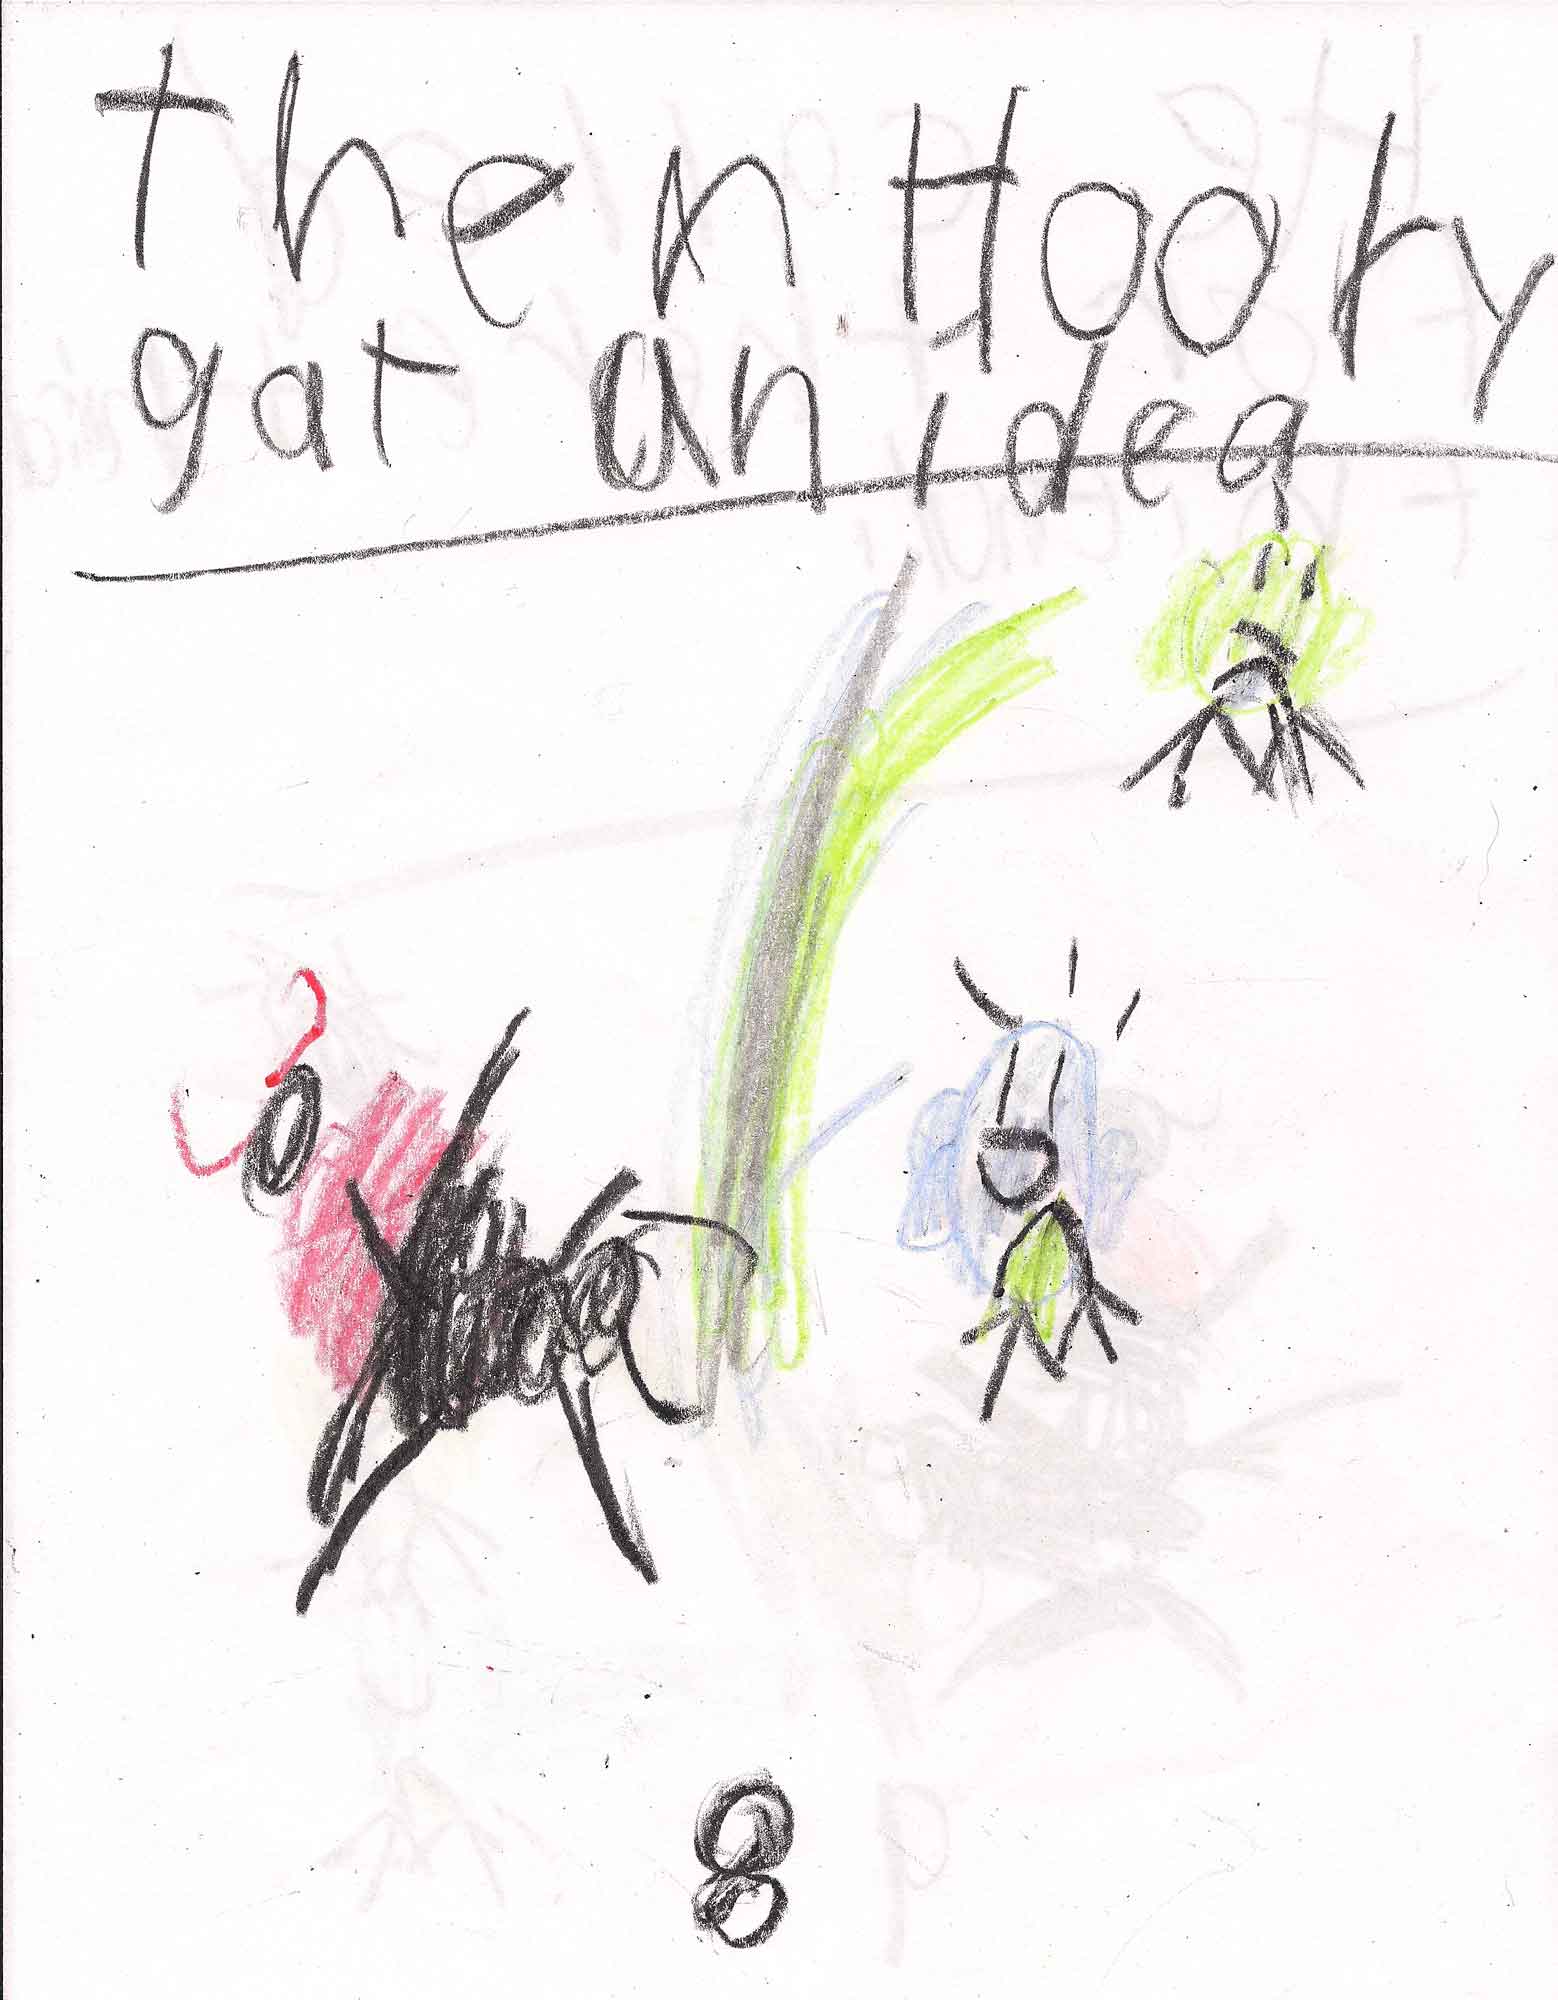 then Hoory
gat an idea
8